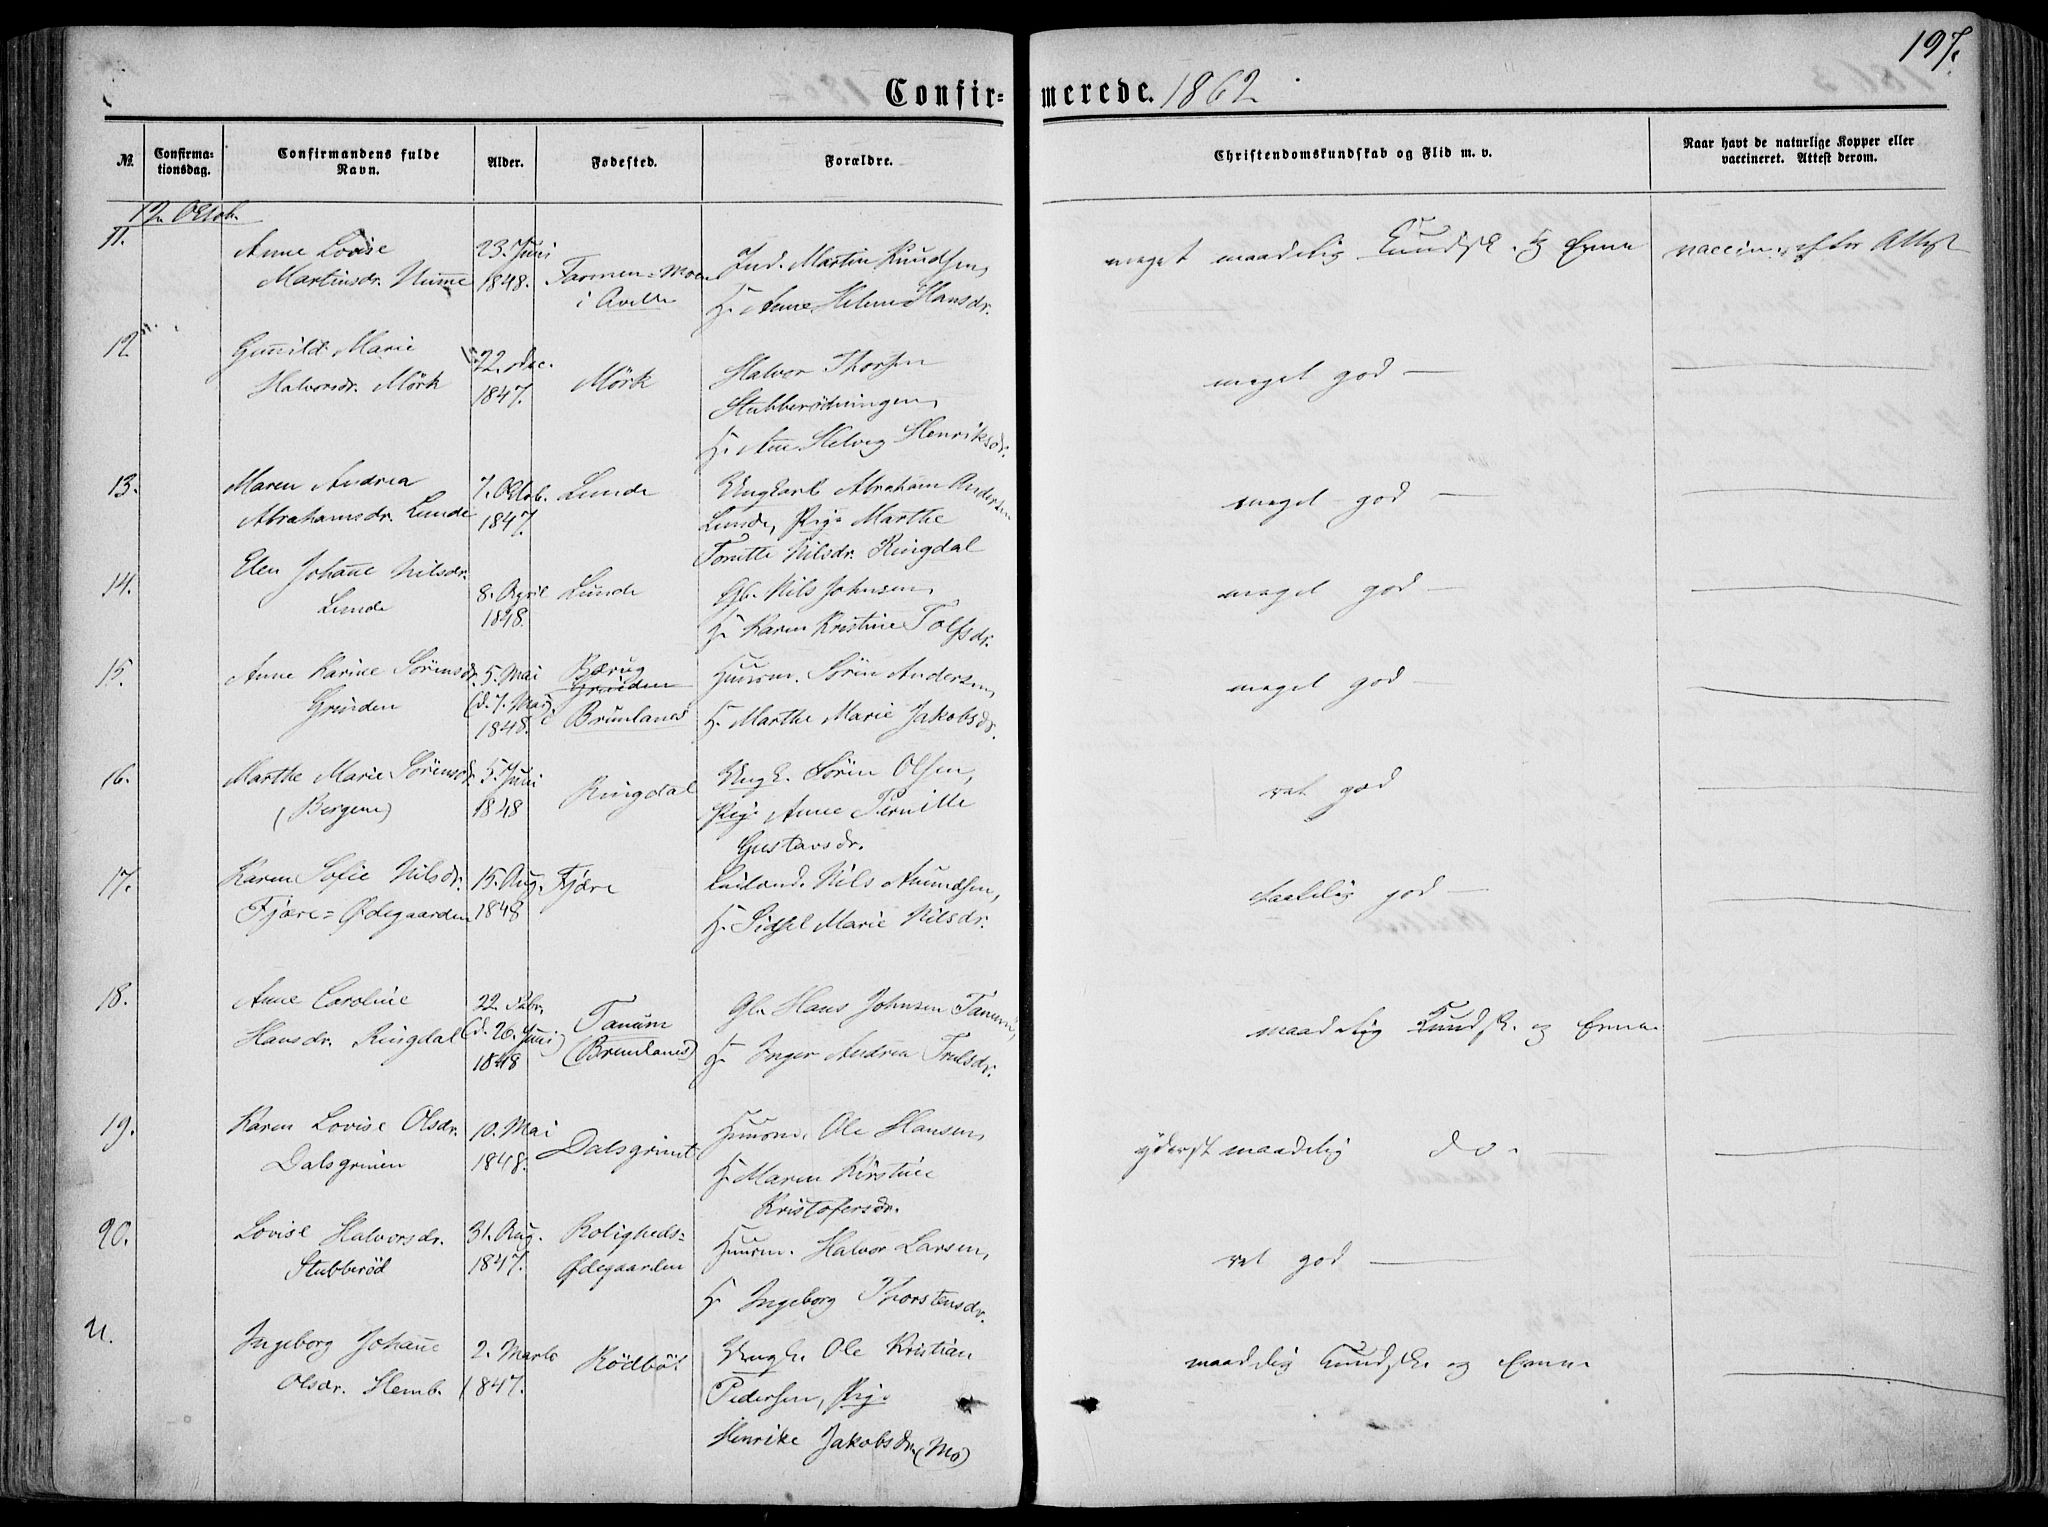 197.
Confirmerede. 1862
№. Confirmationsdag. Confirmandens fulde Navn. Alder. Fødested. Forældre. Christendomskundskab og Flid m. v. Naar havt de naturlige Kopper eller vaccineret. Attest derom.
12. Octob.
11. Anne Lovise 23. Juni Ind. Martin Knudsen, meget maadelig Kundsk. og Evne vaccin. efter Attest
Martinsdr. Numme 1848. Farmen=Moen
i H. Anne Helene Hansdr.
12 Gunild Marie 22. Dec. Halvor Thorsen meget god —
Halvorsdr. Mörk 1847. Mörk Stubberødningen,
H. Ane Helvig Henriksdr.
13. Maren Andrea 7. Octob. Lunde Ungkarl Abraham Andersen meget god —
Abrahamsdr. Lunde 1847. Lunde, Pig. Marthe
Torette Nilsdr. Ringdal
14. Elen Johanne Nilsdr. 8. April Lunde Gb. Nils Johnsen, meget god —
Lunde 1848. H. Karen Kristine Tolfsdr.
15. Anne Karine Sörensdr. 5. Mai Bærug Huusm. Sören Andersen, meget god —
Grinden (d. 7. Mai) Grinden
1848. Brunlanes H. Marthe Marie Jakobsdr.
16. Marthe Marie Sörensdr. 5. Juni Ringdal Ungk. Sören Olsen, ret god
(Bergene) 1848 Pig. Anne Pernille
Gustavsdr.
17. Karen Sofie Nilsdr. 15. Aug. Fjære Nils Amundsen, taalelig god —
Fjære=Ødegaarden 1848 H. Sidsel Marie Nilsdr.
18. Anne Caroline 22. Febr. Tanum Gb. Hans Johnsen Tanum, maadelig Kundsk. og Evne
Hansdr. Ringdal (d. 20. Juni) (Brunlanes) H. Inger Andrea Trulsdr.
1848
19. Karen Lovise Olsdr. 10. Mai Dalsgrinet Huusm. Ole Hansen, yderst maadelig do. —
Dalsgrinen 1848. H. Maren Kirstine
Kristofersdr.
20. Lovise Halvorsdr. 31. Aug. Roligheds= Huusm. Halvor Larsen, ret god —
Stubberød 1847. Ødegaarden
H. Ingeborg Thorstensdr.
21. Ingeborg Johanne 2. Marts Rödböl Ungk. Ole Kristian maadelig Kundsk. og Evne
Olsdr. Hemb. 1847. Pedersen, Pig.
Henrike Jakobsdr. (Mo)